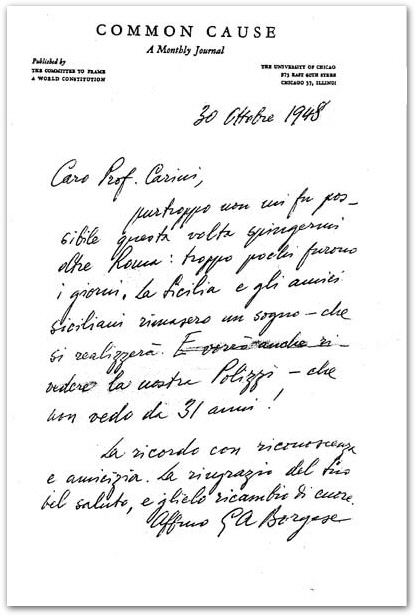 COMMON CAUSE
A Monthly Journal
Published by
THE COMMITTEE TO FRAME
A WORLD CONSTITUTION
THE UNIVERSITY OF CHICAG
975 EAST 60TH STREE
CHICAGO 37, ILLINOI
30 Ottobre 1948
Caro Prof. Carini,
purtroppo non mi fu pos-
sibile questa volta spingermi
oltre Roma: troppo pochi furono
i giorni. La Sicilia e gli amici
siciliani rimasero un sogno – che
si realizzerà. E vorrò anche ri-
vedere la nostra Polizzi – che
non vedo da 31 anni!
La ricordo con riconoscenza
e amicizia. La ringrazio del Suo
bel saluto, e glielo ricambio di cuore.
Affmo G A Borgese